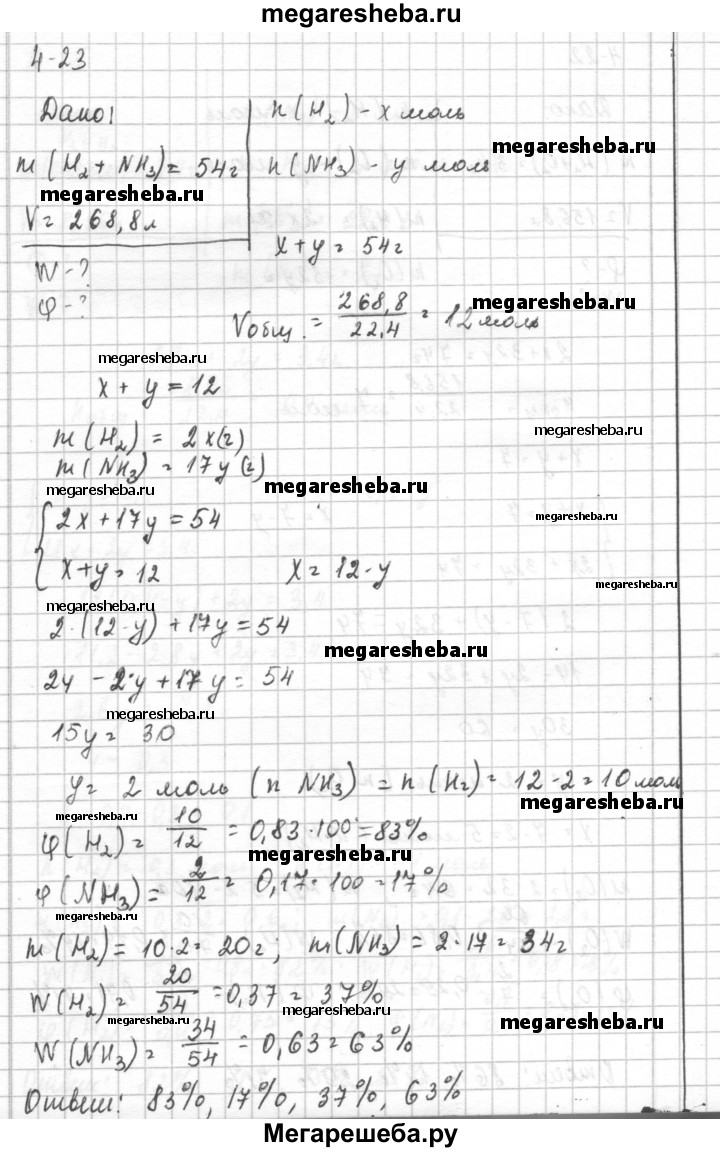 megaresheba.ru
4-23
Дано:
n(H₂) - x моль
megaresheba.ru
m(H₂ + NH₃) = 54г
n(NH₃) - y моль
megaresheba.ru
V = 268,8л
x + y = 54г
W - ?
φ - ?
Vобщ. = 268,8/22,4 = 12 моль
megaresheba.ru
megaresheba.ru
x + y = 12
megaresheba.ru
m(H₂) = 2x(г)
m(NH₃) = 17y(г)
megaresheba.ru
megaresheba.ru
{ 2x + 17y = 54
megaresheba.ru
x + y = 12
x = 12 - y
megaresheba.ru
2·(12-y) + 17y = 54
megaresheba.ru
24 - 2·y + 17y = 54
megaresheba.ru
15y = 30
y = 2 моль (n NH₃) = n(H₂) = 12 - 2 = 10 моль
megaresheba.ru
megaresheba.ru
φ(H₂) = 10/12 = 0,83·100 = 83%
megaresheba.ru
megaresheba.ru
φ(NH₃) = 2/12 = 0,17·100 = 17%
megaresheba.ru
m(H₂) = 10·2 = 20г; m(NH₃) = 2·17 = 34г
W(H₂) = 20/54 = 0,37 = 37%
megaresheba.ru
megaresheba.ru
megaresheba.ru
W(NH₃) = 34/54 = 0,63 = 63%
Ответ: 83%, 17%, 37%, 63%
Мегарешеба.ру